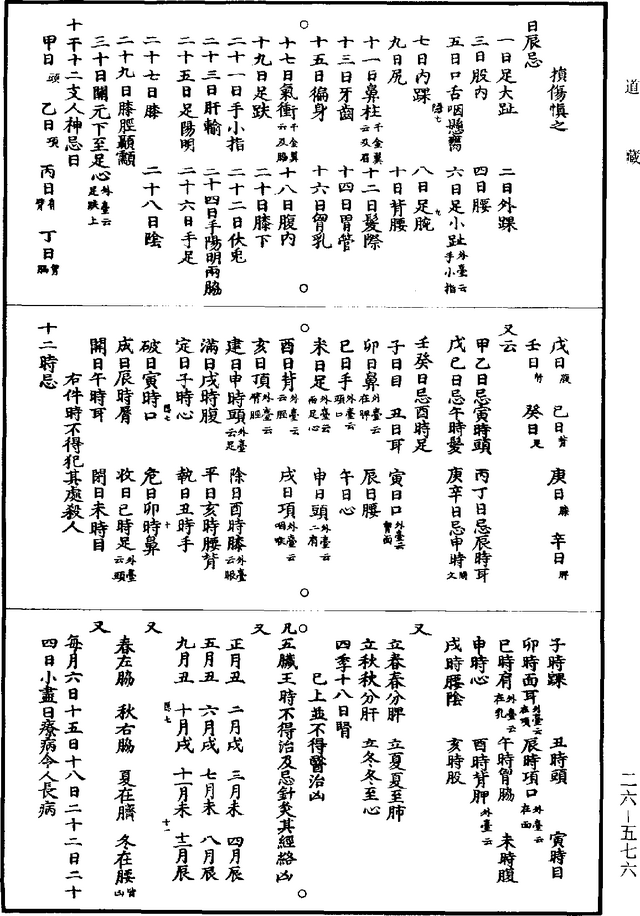 道藏
損傷慎之
日辰忌
一日足大趾　二日外踝
三日股內　四日腰
五日口舌咽懸雍　六日足小趾外臺云手小指
七日內踝　八日足腕
九日尻　十日背腰
十一日鼻柱千金翼云及眉　十二日髮際
十三日牙齒　十四日胃管
十五日徧身　十六日胷乳
十七日氣衝千金翼云及脇　十八日腹內
十九日足趺　二十日膝下
二十一日手小指　二十二日伏兔
二十三日肝輸　二十四日手陽明兩脇
二十五日足陽明　二十六日手足
二十七日膝　二十八日陰
二十九日膝脛顳顬
三十日關元下至足心外臺云足趺上
十干十二支人神忌日
甲日頭　乙日項　丙日肩臂　丁日胷脇
戊日腹　己日背　庚日膝　辛日脾
壬日腎　癸日足
又云
甲乙日忌寅時頭　丙丁日忌辰時耳
戊己日忌午時髮　庚辛日忌申時闕文
壬癸日忌酉時足
子日目　丑日耳　寅日口外臺云胷面
卯日鼻外臺云在脾　辰日腰
巳日手外臺云頭口　午日心
未日足外臺云兩足心　申日頭外臺云二肩
酉日背外臺云脛　戌日項外臺云咽喉
亥日頂外臺云臂脛
建日申時頭外臺云足　除日酉時膝外臺云眼
滿日戌時腹　平日亥時腰背
定日子時心　執日丑時手
破日寅時口　危日卯時鼻
成日辰時脣　收日巳時足外臺云頭
開日午時耳　閉日未時目
右件時不得犯其處殺人
十二時忌
子時踝　丑時頭　寅時目
卯時面耳外臺云在項　辰時項口外臺云在面
巳時肩外臺云在乳　午時胷脇　未時腹
申時心　酉時背胛外臺云
戌時腰陰　亥時股
又
立春春分脾　立夏夏至肺
立秋秋分肝　立冬冬至心
四季十八日腎
已上並不得醫治凶
凡五臟王時不得治及忌針灸其經絡凶
又
正月丑　二月戌　三月未　四月辰
五月丑　六月戌　七月未　八月辰
九月丑　十月戌　十一月未　十二月辰
又
春左脇　秋右脇　夏在臍　冬在腰皆凶
又
每月六日十五日十八日二十二日二十
四日小盡日療病令人長病
二六—五七六